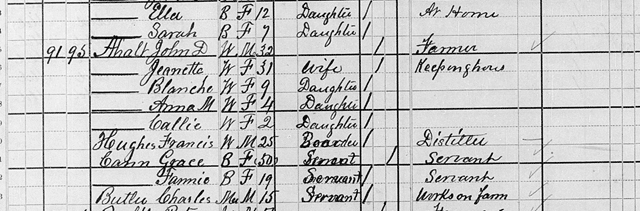 Ella B F 12 Daughter / At Home
Sarah B F 7 Daughter /
91 95 Ahalt John D W M 32 / Farmer
Jeanette W F 31 Wife / Keeping house
Blanche W F 9 Daughter /
Anna M W F 4 Daughter /
Callie W F 2 Daughter /
Hughes Francis W M 25 Boarder / Distiller
Cann Grace B F 50 Servant / Servant
Fannie B F 19 Servant / Servant
Butler Charles Mu M 15 Servant / Works on Farm